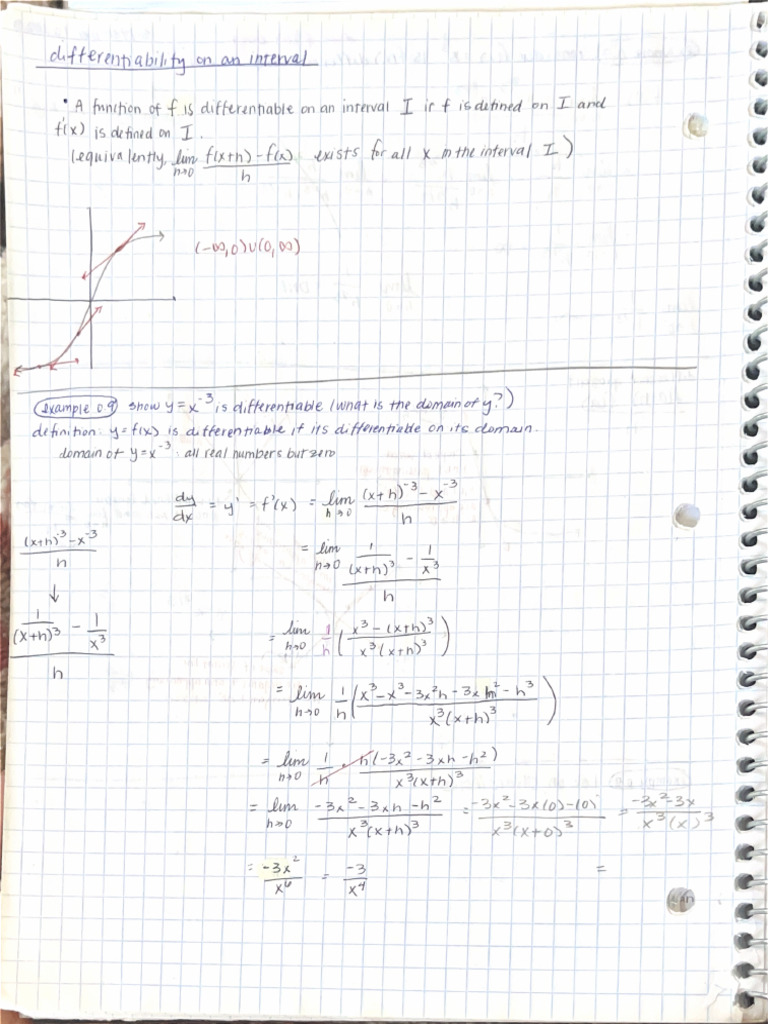 differentiability on an interval
• A function of f is differentiable on an interval I if f is defined on I and
f'(x) is defined on I.
(equivalently, lim h→0 (f(x+h) - f(x))/h exists for all x in the interval I)
(-∞,0)∪(0,∞)
example 0.9 show y = x^-3 is differentiable (what is the domain of y?)
definition: y = f(x) is differentiable if its differentiable on its domain.
domain of y = x^-3 : all real numbers but zero
dy/dx = y' = f'(x) = lim h→0 ((x+h)^-3 - x^-3)/h
((x+h)^-3 - x^-3)/h
↓
(1/(x+h)^3 - 1/x^3)/h
= lim h→0 (1/(x+h)^3 - 1/x^3)/h
= lim h→0 1/h ((x^3 - (x+h)^3)/(x^3(x+h)^3))
= lim h→0 1/h ((x^3 - x^3 - 3x^2h - 3xh^2 - h^3)/(x^3(x+h)^3))
= lim h→0 1/h · h(-3x^2 - 3xh - h^2)/(x^3(x+h)^3)
= lim h→0 (-3x^2 - 3xh - h^2)/(x^3(x+h)^3) = (-3x^2 - 3x(0) - (0))/(x^3(x+0)^3) = (-3x^2 - 3x)/(x^3(x)^3)
= -3x^2/x^6 = -3/x^4 =